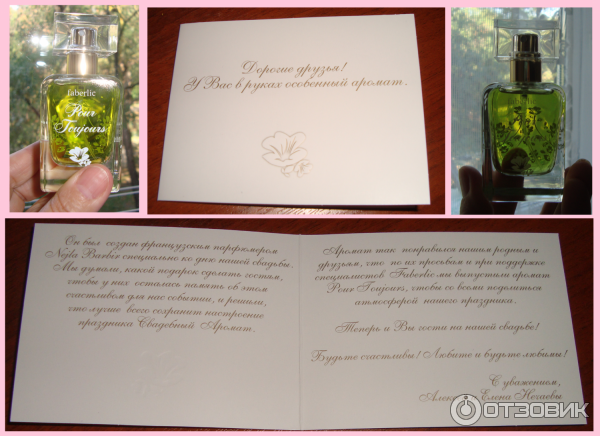 faberlic
Pour
Toujours
Дорогие друзья!
У Вас в руках особенный аромат.
Он был создан французским парфюмером
Nejla Barbir специально ко дню нашей свадьбы.
Мы думали, какой подарок сделать гостям,
чтобы у них осталась память об этом
счастливом для нас событии, и решили,
что лучше всего сохранит настроение
праздника Свадебный Аромат.
Аромат так понравился нашим родным и
друзьям, что по их просьбам и при поддержке
специалистов Faberlic мы выпустили аромат
Pour Toujours, чтобы со всеми поделиться
атмосферой нашего праздника.
Теперь и Вы гости на нашей свадьбе!
Будьте счастливы! Любите и будьте любимы!
С уважением,
Елена Нечаевы
ОТЗОВИК